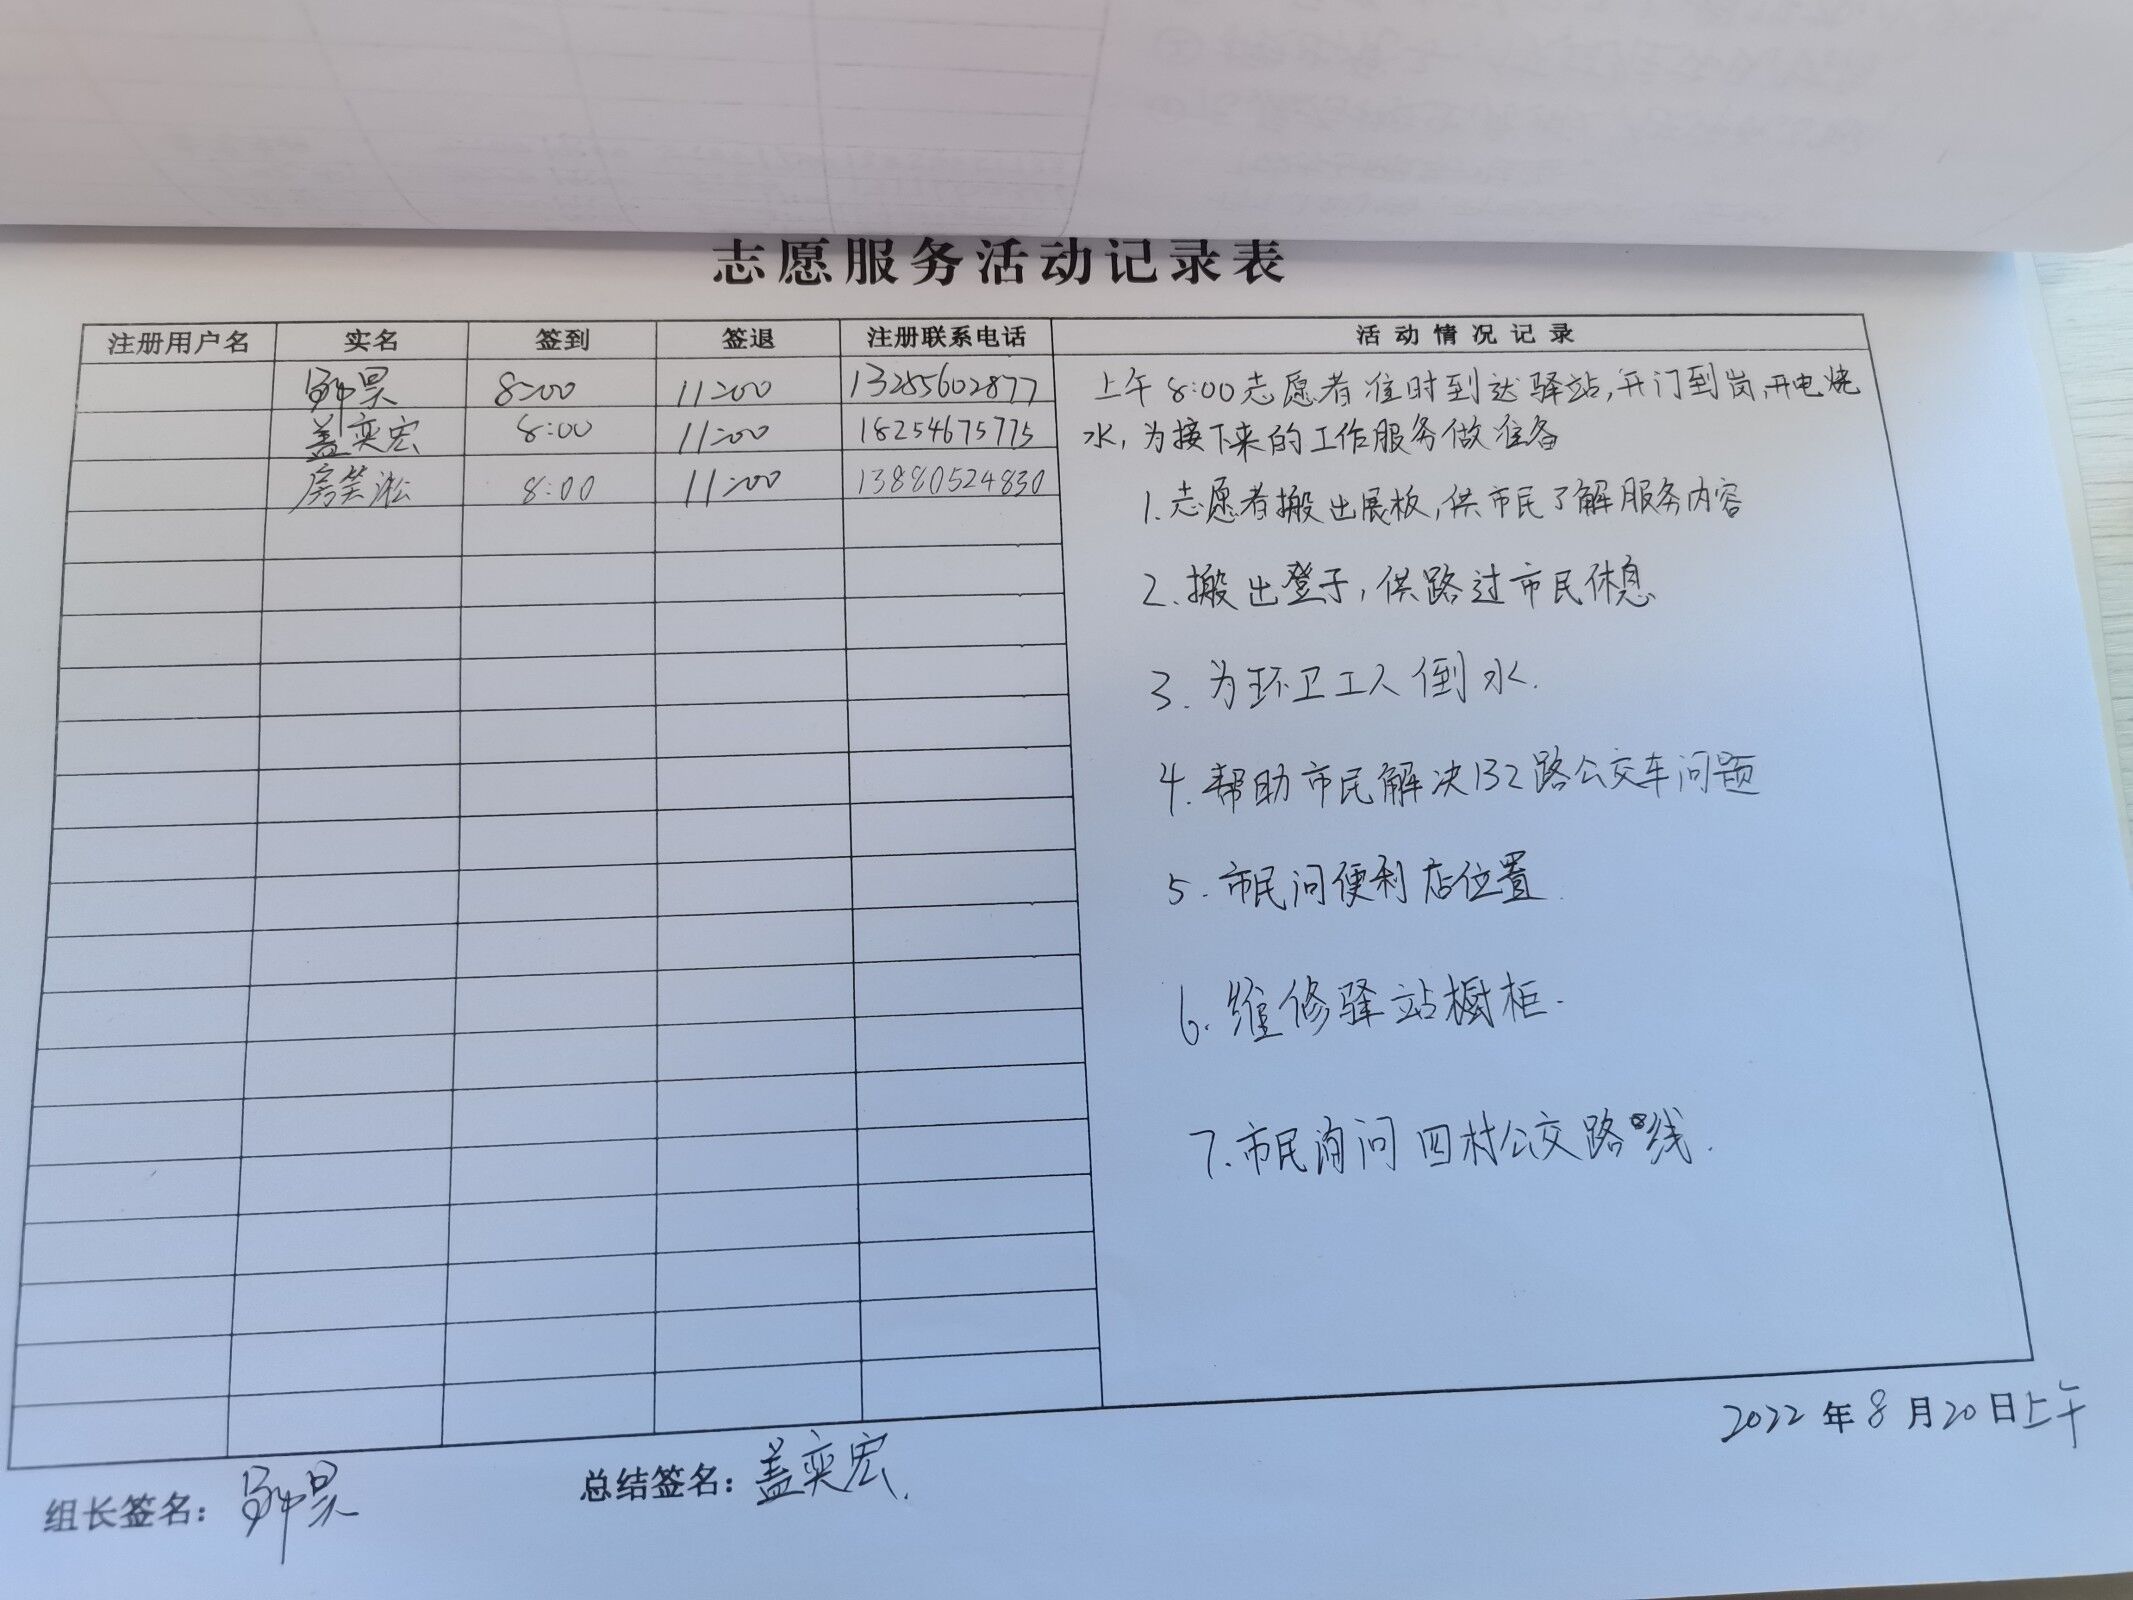 志愿服务活动记录表
注册用户名 实名 签到 签退 注册联系电话 活动情况记录
昊 8:00 11:00 13285602877
盖奕宏 8:00 11:00 18254675775
房笑淞 8:00 11:00 13880524830
上午8:00志愿者准时到达驿站,开门到岗,开电烧
水,为接下来的工作服务做准备
1.志愿者搬出展板,供市民了解服务内容
2.搬出登子,供路过市民休息
3.为环卫工人倒水.
4.帮助市民解决132路公交车问题
5.市民问便利店位置.
6.维修驿站橱柜.
7.市民询问四村公交路线.
2022年8月20日上午
组长签名: 昊
总结签名:盖奕宏.